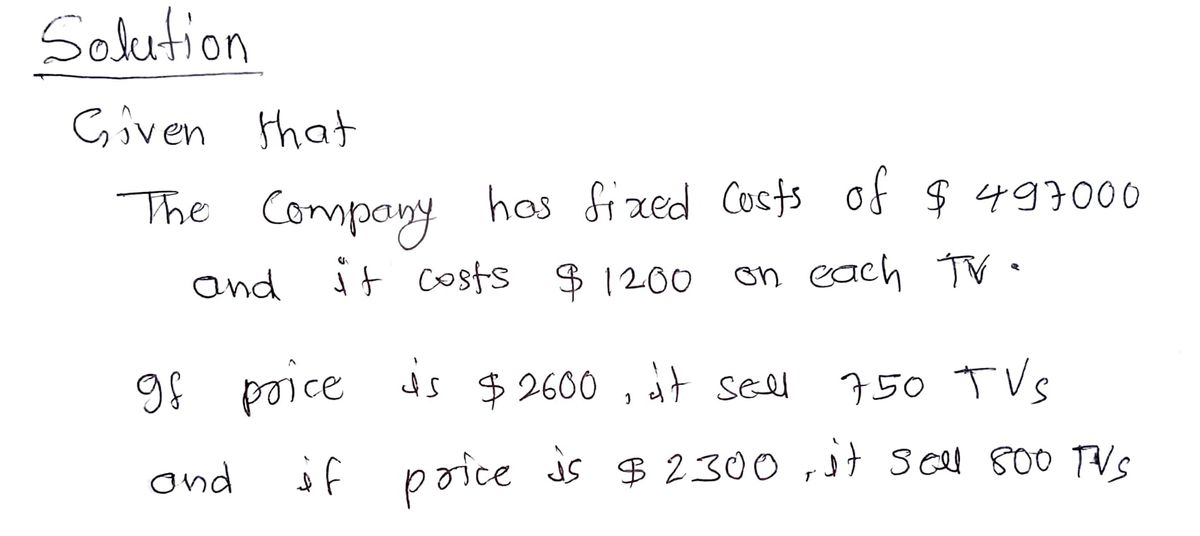 Solution
Given that
The Company has fixed Costs of $ 497000
and it costs $ 1200 on each TV.
If price is $ 2600, it sell 750 TVs
and if price is $ 2300, it sell 800 TVs